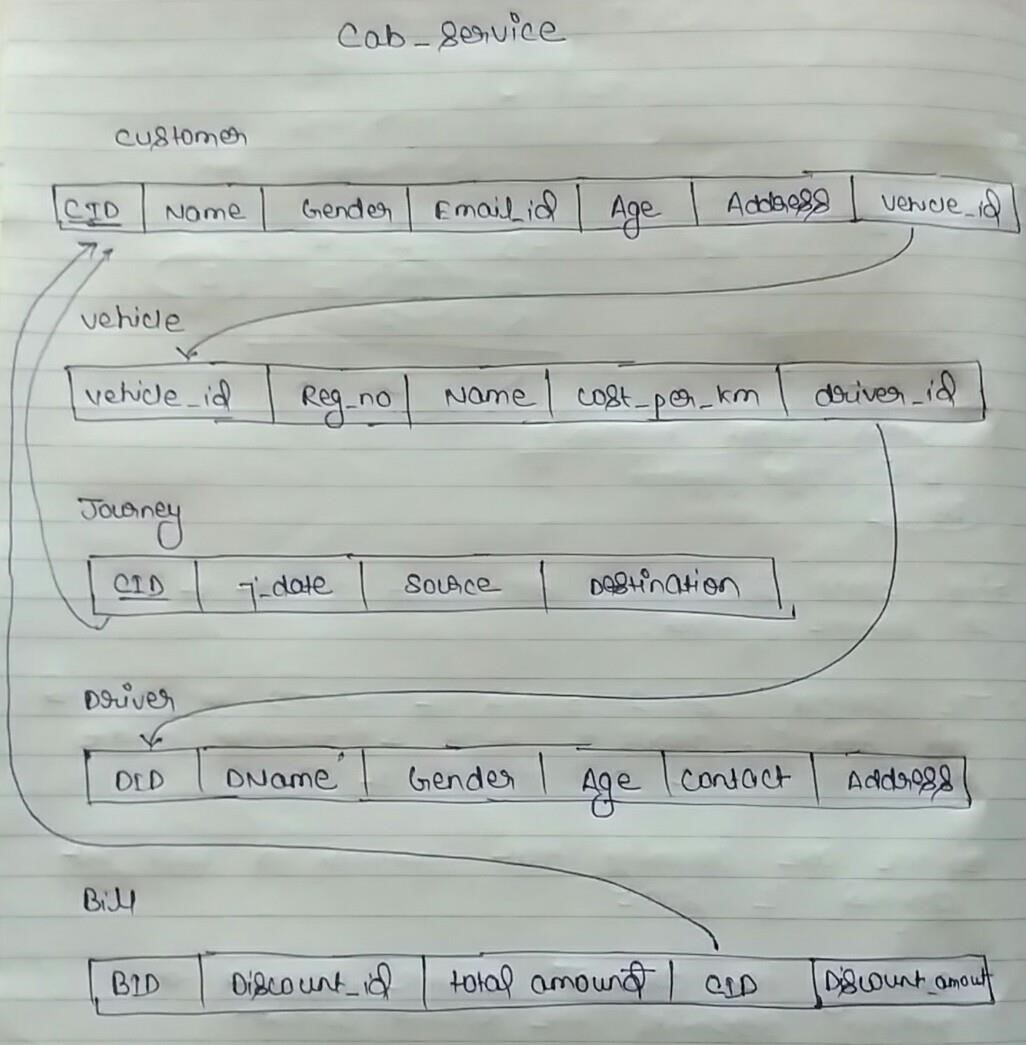 Cab_service
Customer
CID Name Gender Email_id Age Address vehicle_id
vehicle
vehicle_id Reg_no Name cost_per_km driver_id
Journey
CID J_date Source Destination
Driver
DID DName Gender Age Contact Address
Bill
BID Discount_id total amount CID Discount_amout